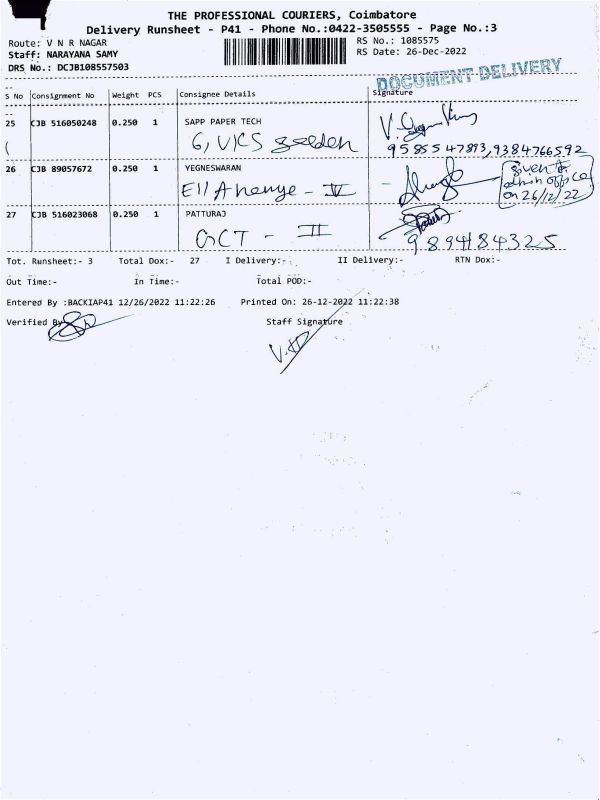 THE PROFESSIONAL COURIERS, Coimbatore
Delivery Runsheet - P41 - Phone No.:0422-3505555 - Page No.:3
Route: V N R NAGAR RS No.: 1085575
Staff: NARAYANA SAMY RS Date: 26-Dec-2022
DRS No.: DCJB108557503
DOCUMENT DELIVERY
S No Consignment No Weight PCS Consignee Details Signature
25 CJB 516050248 0.250 1 SAPP PAPER TECH
6, VKS
9585547893,9384766592
26 CJB 89057672 0.250 1 YEGNESWARAN
- IV
given to
admin office
on 26/12/22
27 CJB 516023068 0.250 1 PATTURAJ
GCT - II
9894184325
Tot. Runsheet:- 3 Total Dox:- 27 I Delivery:- II Delivery:- RTN Dox:-
Out Time:- In Time:- Total POD:-
Entered By :BACKIAP41 12/26/2022 11:22:26 Printed On: 26-12-2022 11:22:38
Verified By Staff Signature